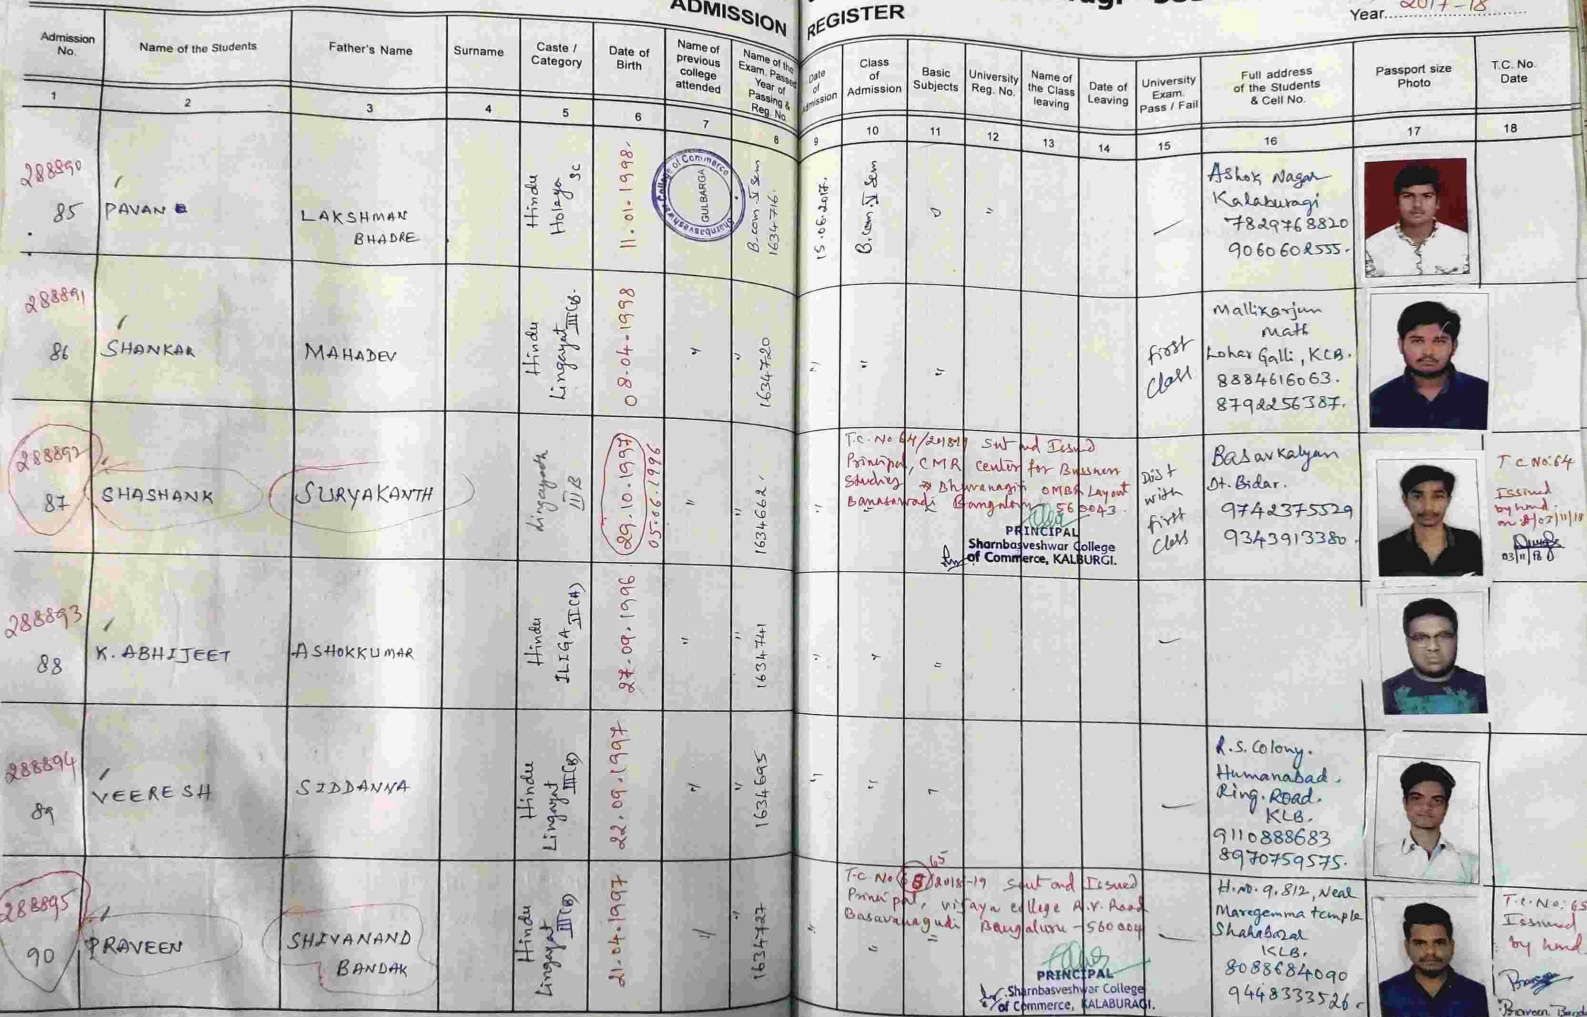 ADMISSION REGISTER
Year 2017-18
Admission No.
Name of the Students
Father's Name
Surname
Caste / Category
Date of Birth
Name of previous college attended
Name of the Exam. Passed Year of Passing & Reg. No.
Date of Admission
Class of Admission
Basic Subjects
University Reg. No.
Name of the Class leaving
Date of Leaving
University Exam. Pass / Fail
Full address of the Students & Cell No.
Passport size Photo
T.C. No. Date
1 2 3 4 5 6 7 8 9 10 11 12 13 14 15 16 17 18
288890
85
PAVAN
LAKSHMAN
BHADRE
Hindu
Holeya
SC
11.01.1998.
College of Commerce
GULBARGA
B.com V Sem
1634716.
15.06.2017.
B.com V Sem
Ashok Nagar
Kalaburagi
7829768820
9060602555.
288891
86
SHANKAR
MAHADEV
Hindu
Lingayat III(B).
08.04.1998
"
"
1634720
"
"
"
first
class
Mallikarjun
Math
Lohar Galli, KLB.
8884616063.
8792256387.
288892
87
SHASHANK
SURYAKANTH
III B
29.10.1997
05.06.1996
"
"
1634662.
T.C. No 64/ Sent and Issued
Principal, CMR Center for Bussness
Studies OMBR Layout
Banaswadi Bangalore 560043.
PRINCIPAL
Sharnbasveshwar College
of Commerce, KALBURGI.
Dist
with
first
class
Basavkalyan
Dt. Bidar.
9742375529
9343913380.
T C No: 64
Issued
by hand.
03/11/18
03/11/18
288893
88
K. ABHIJEET
ASHOKKUMAR
Hindu
ILIGA II(A)
27.09.1996
"
"
1634741
"
"
"
288894
89
VEERESH
SIDDANNA
Hindu
Lingayat
III(B)
22.09.1997
"
"
1634695
"
"
R.S. Colony.
Humanabad.
Ring. Road.
KLB.
9110888683
8970759575.
288895
90
PRAVEEN
SHIVANAND
BANDAK
Hindu
Lingayat
III(B)
21.04.1997
"
"
1634727
"
65
T.C No /2018-19 Sent and Issued
Principal, vijaya college R.V. Road
Basavanagudi Bangaluru - 560004
"
"
PRINCIPAL
Sharnbasveshwar College
of Commerce, KALABURAGI.
H.No. 9.812, Near
Maregemma temple
Shahabazar
KLB.
8088684090
9448333526.
T.C. No: 65
Issued
by hand.